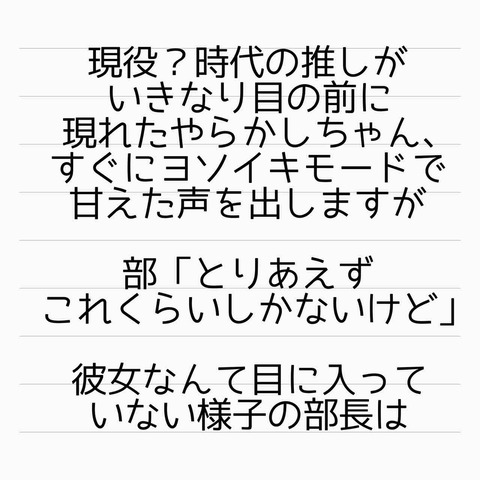 現役？時代の推しが
いきなり目の前に
現れたやらかしちゃん、
すぐにヨソイキモードで
甘えた声を出しますが
部「とりあえず
これくらいしかないけど」
彼女なんて目に入って
いない様子の部長は